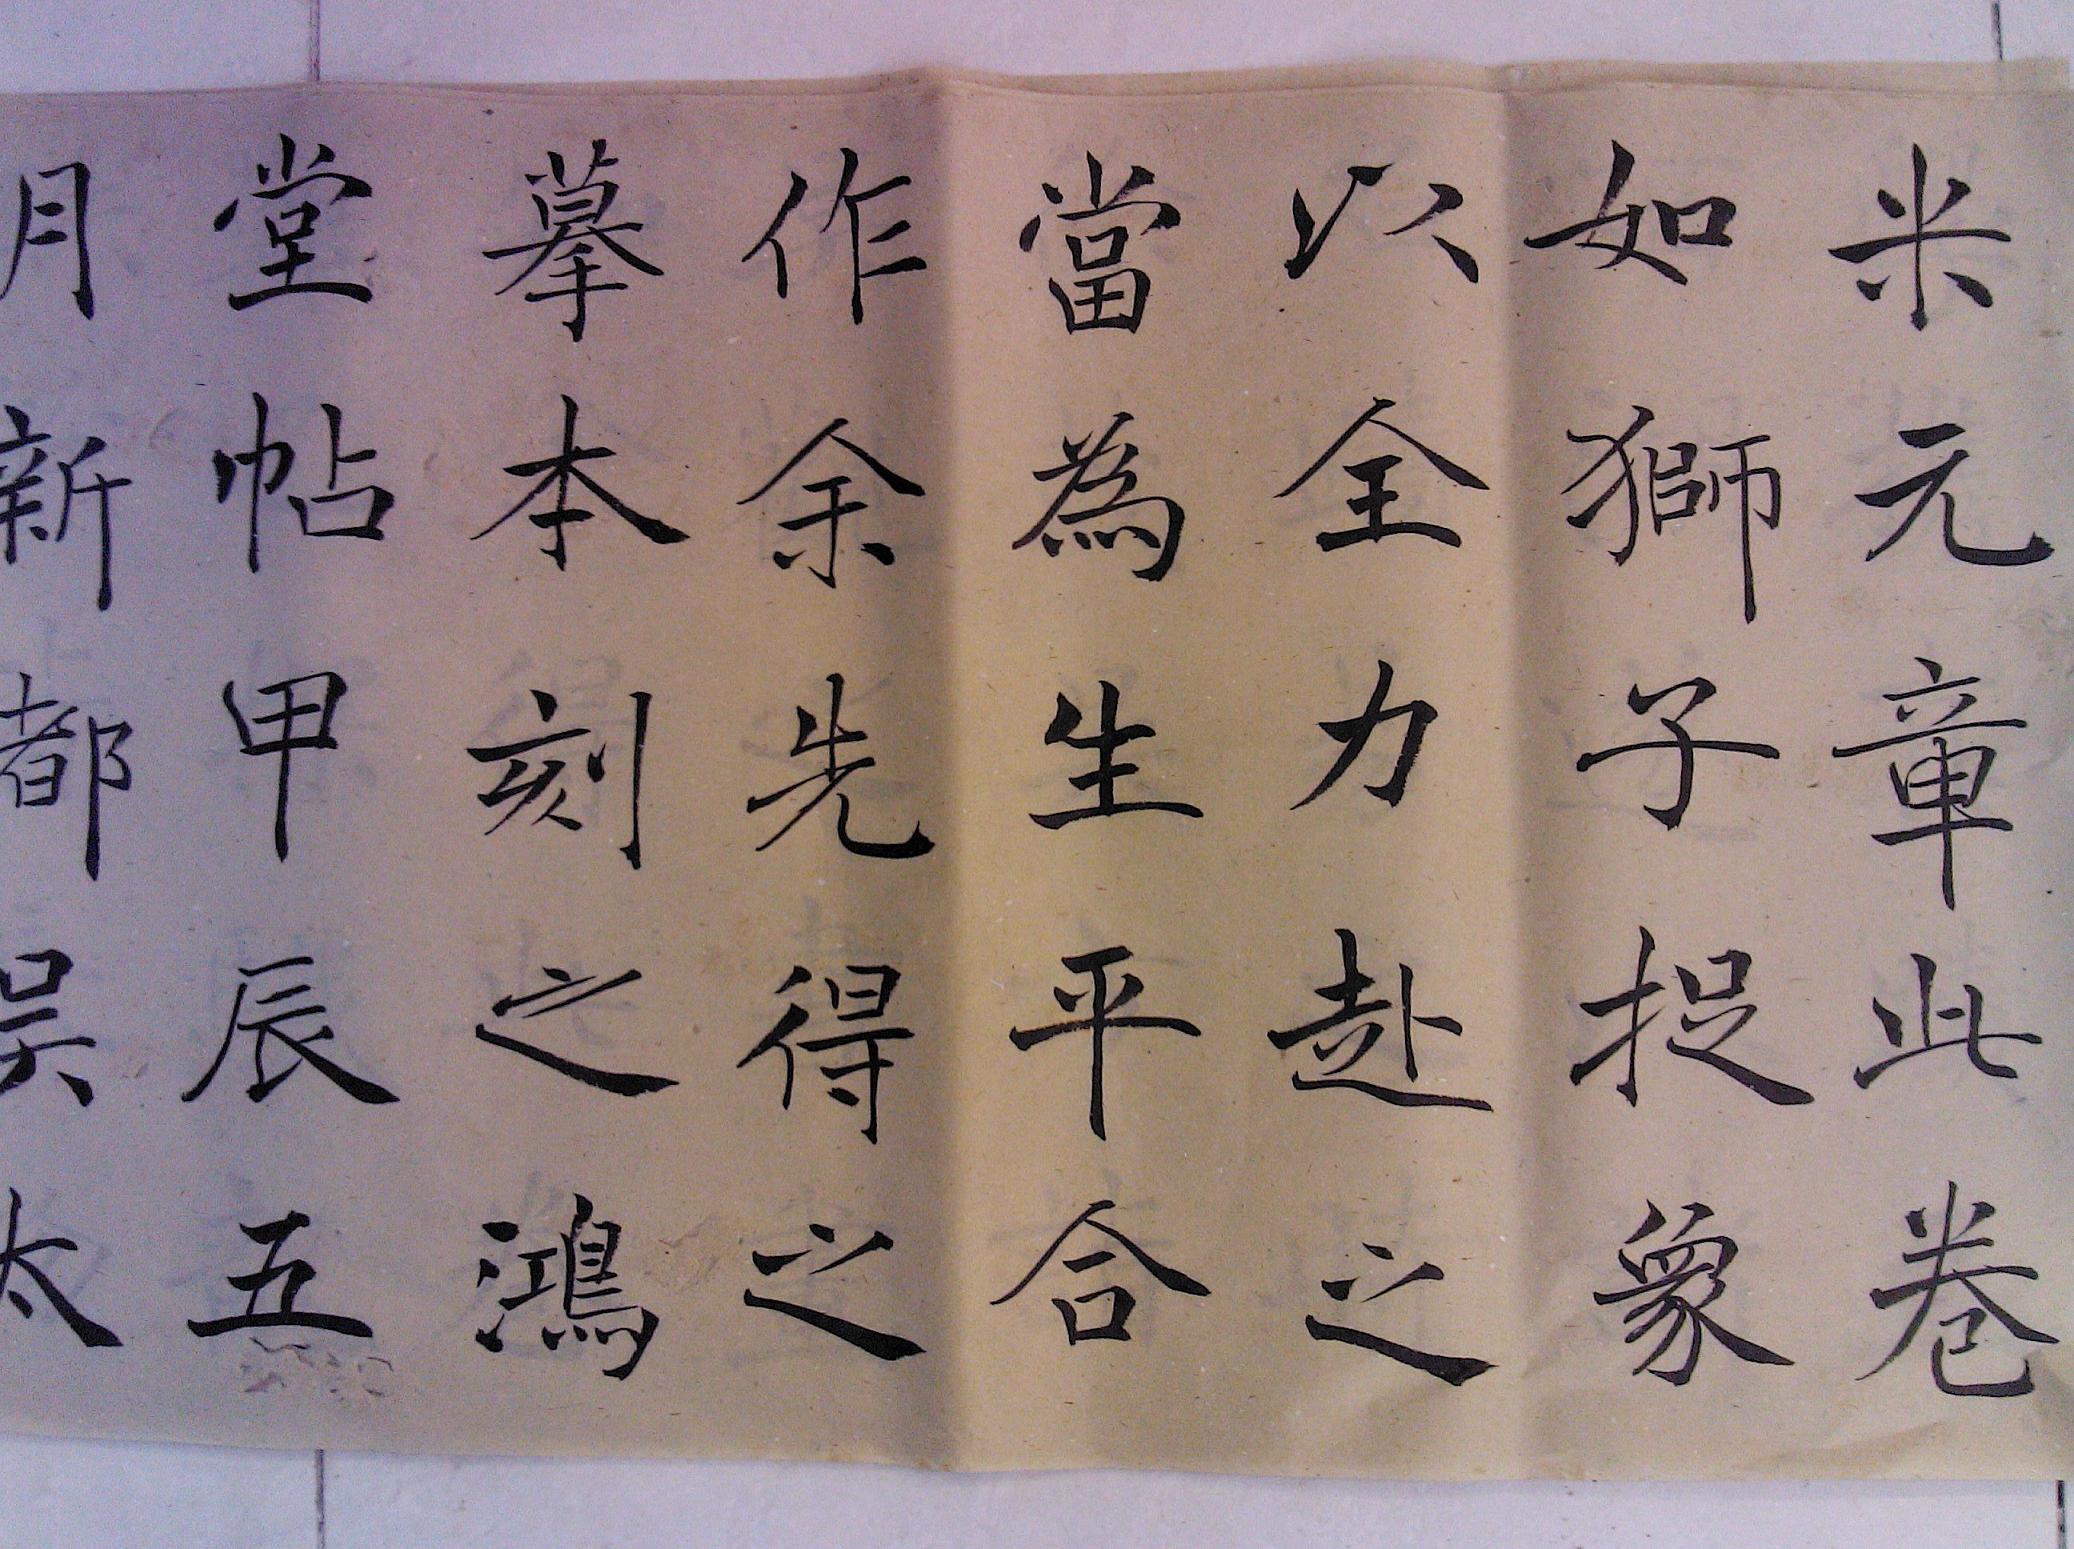 米元章此卷
如獅子捉象
以全力赴之
當為生平合
作余先得之
摹本刻之鴻
堂帖甲辰五
月新都吴太